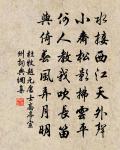 水接西江天外聲
小齋松影拂雲平
何人教我吹長笛
與倚春風弄月明
杜牧題元處士高亭宣
州詞典網集